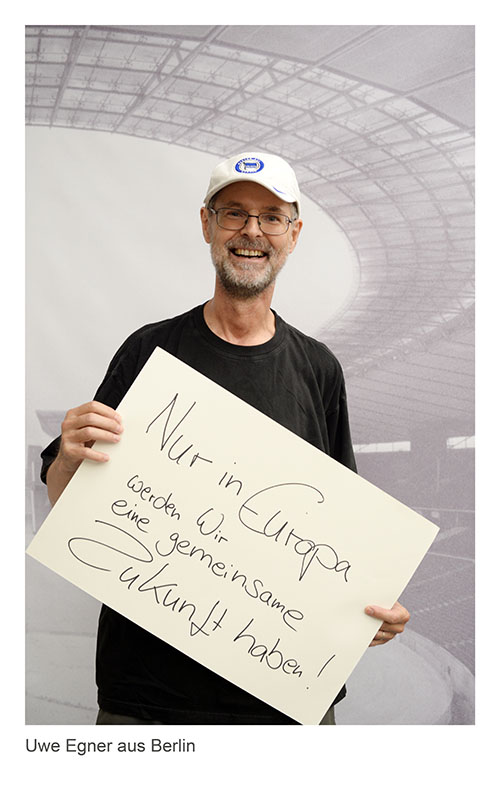 Nur in Europa
werden Wir
eine gemeinsame
Zukunft haben!
Uwe Egner aus Berlin